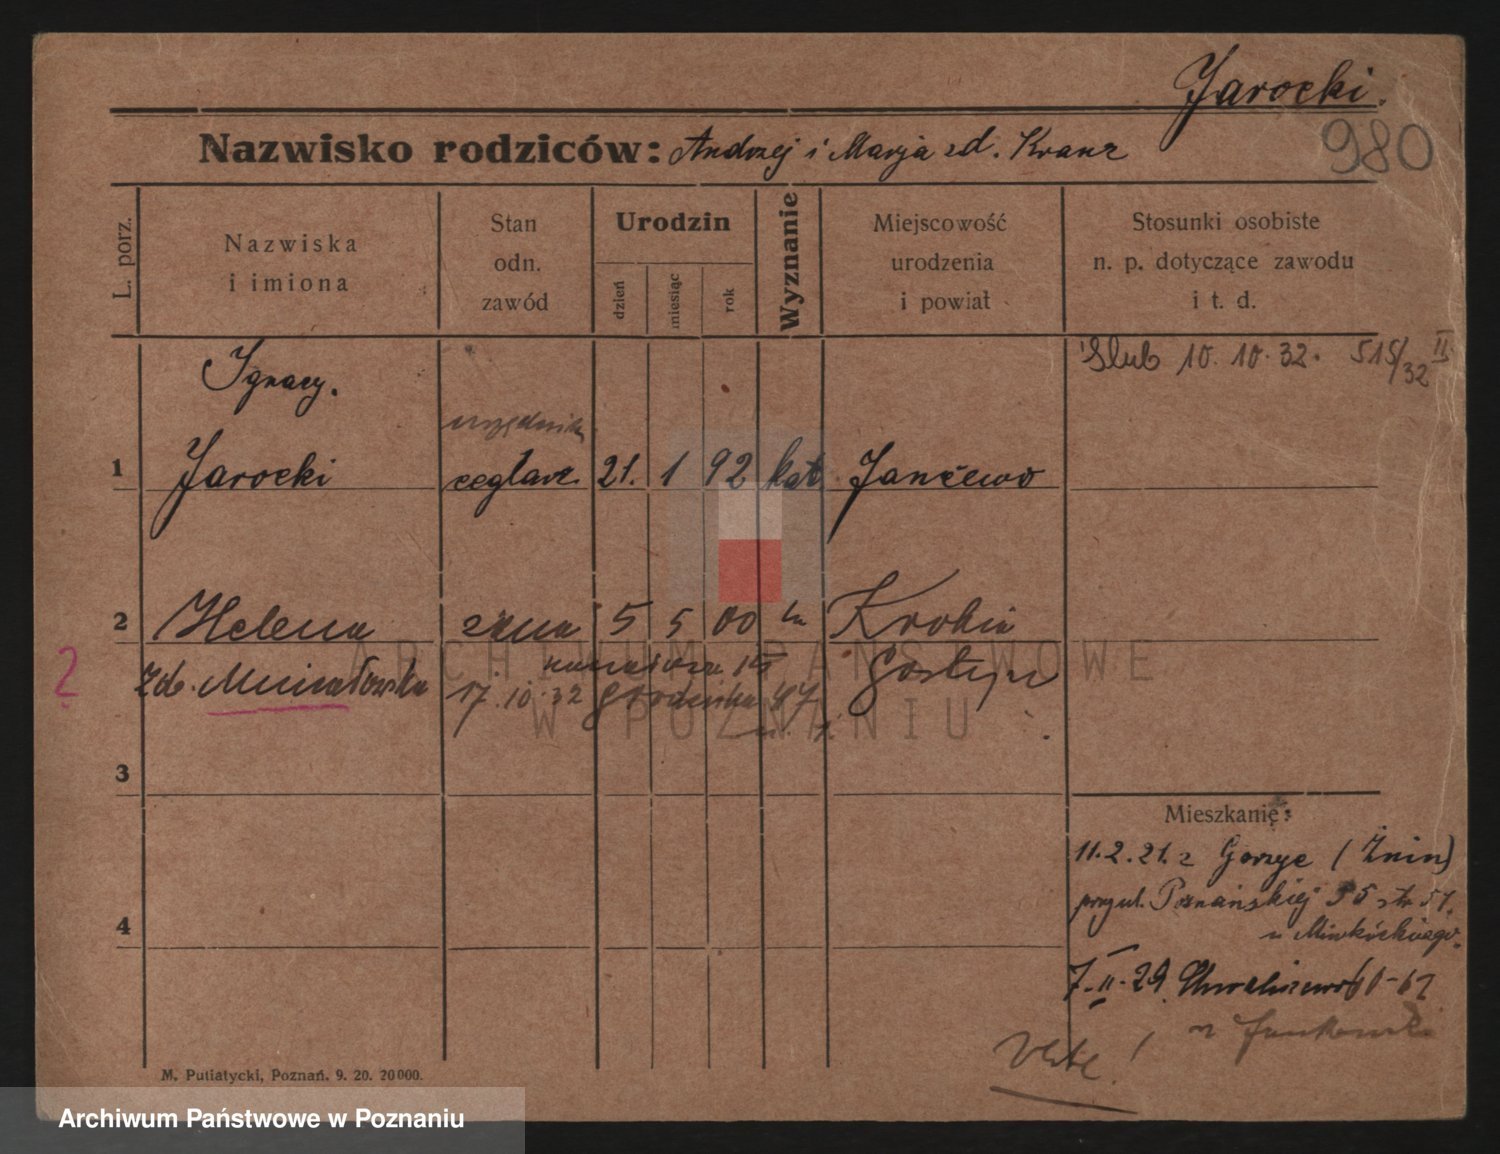 Jarocki.
980
Nazwisko rodziców: Andrzej i Marja zd. Kranz
L. porz.
Nazwiska
i imiona
Stan
odn.
zawód
Urodzin
dzień
miesiąc
rok
Wyznanie
Miejscowość
urodzenia
i powiat
Stosunki osobiste
n. p. dotyczące zawodu
i t. d.
Ignacy.
Ślub 10. 10. 32. 515/32 II
urzędnik
1 Jarocki ceglarz 21. 1 92 kat Jančewo
2 Helena żona 5 5 00 Krobia
? Zd. Gostyń
17.10.32 Grodziska
3
Mieszkanie:
11.2.21. z Gorzyc (Żnin)
przy ul. Poznańskiej 55 str 57.
4
7-II-29. Chwaliszewo
ARCHIWUM PAŃSTWOWE
W POZNANIU
M. Putiatycki, Poznań. 9. 20. 20000.
Archiwum Państwowe w Poznaniu